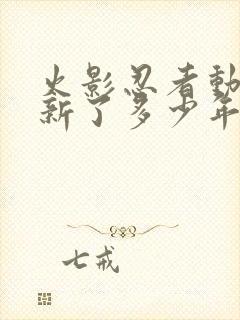 火影忍者動
新了多少年
七戒